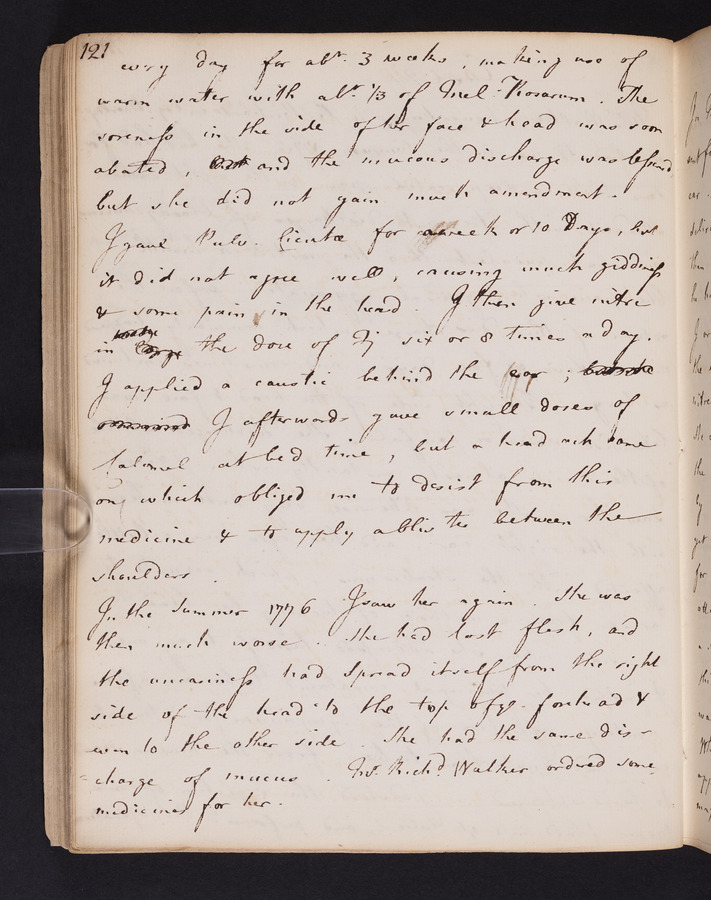 121
every day for abt. 3 weeks, making use of
warm water with abt. 1/3 of Mel: Rosarum. The
soreness in the side of her face & head was soon
abated, and the mucous discharge was lessened
but she did not gain much amendment.
I gave Pulv. Cicutæ for a week or 10 Days, but
it did not agree well, causing much giddiness
& some pain in the head. I then give nitre
in the dose of six or 8 times a day.
I applied a caustic behind the ear;
I afterwards gave small doses of
Calomel at bed time, but a head ach came
on, which obliged me to desist from this
medicine & to apply a blister between the
shoulders.
In the Summer 1776 I saw her again. She was
then much worse. She had lost flesh, and
the uneasiness had Spread itself from the right
side of the head to the top of ye. forehead &
even to the other side. She had the same dis-
=charge of mucus. Mr. Richd. Walker ordered some
medicines for her.